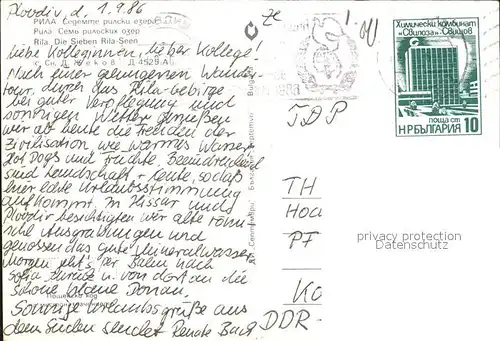 Plovdiv, d. 1.9.86
РИЛА Седемте рилски езера
Рила Семь рильских озер
Rila. Die Sieben Rila-Seen
Liebe Kolleginnen, lieber Kollege!
Nach einer gelungenen Wander-
tour durch das Rila-Gebirge
bei guter Verpflegung und
sonnigem Wetter genießen
wir ab heute die Freuden der
Zivilisation wie warmes Wasser
Hot Dogs und Früchte. Beeindruckend
sind Landschaft + Leute, sodaß
hier echte Urlaubsstimmung
aufkommt. In Hissar und
Plovdiv besichtigten wir alte römi-
sche Ausgrabungen und
genossen das gute Mineralwasser
Morgen geht's per Bahn nach
Sofia zurück u. von dort an die
Schöne blaue Donau.
Sonnige Urlaubsgrüße aus
dem Süden sendet Renate
Химически комбинат
"Свилоза" Свищов
поща ст
НР БЪЛГАРИЯ 10
TH
PF
DDR-
privacy protection
Datenschutz